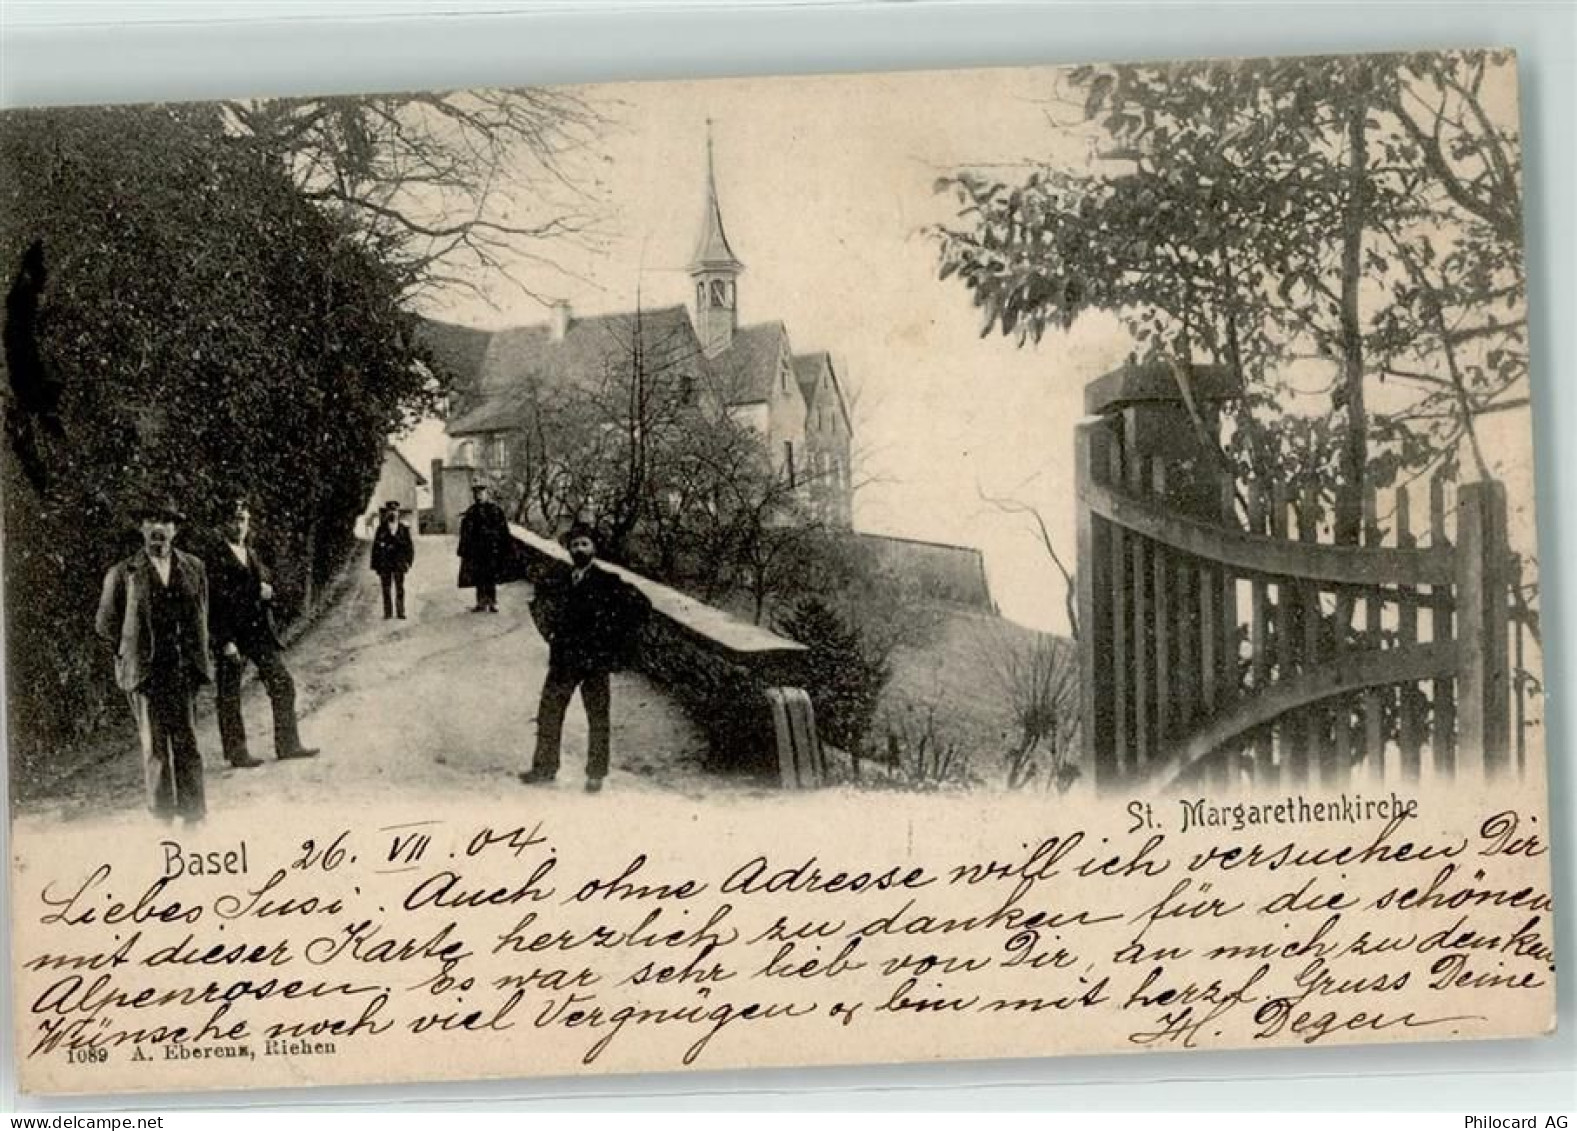 St. Margarethenkirche
Basel 26. VII. 04.
Liebes Susi. Auch ohne Adresse will ich versuchen Dir
mit dieser Karte herzlich zu danken für die schönen
Alpenrosen. Es war sehr lieb von Dir, an mich zu denken.
Wünsche noch viel Vergnügen & bin mit herzl. Gruss Deine
H. Degen
1089 A. Eberenz, Riehen
Philocard AG